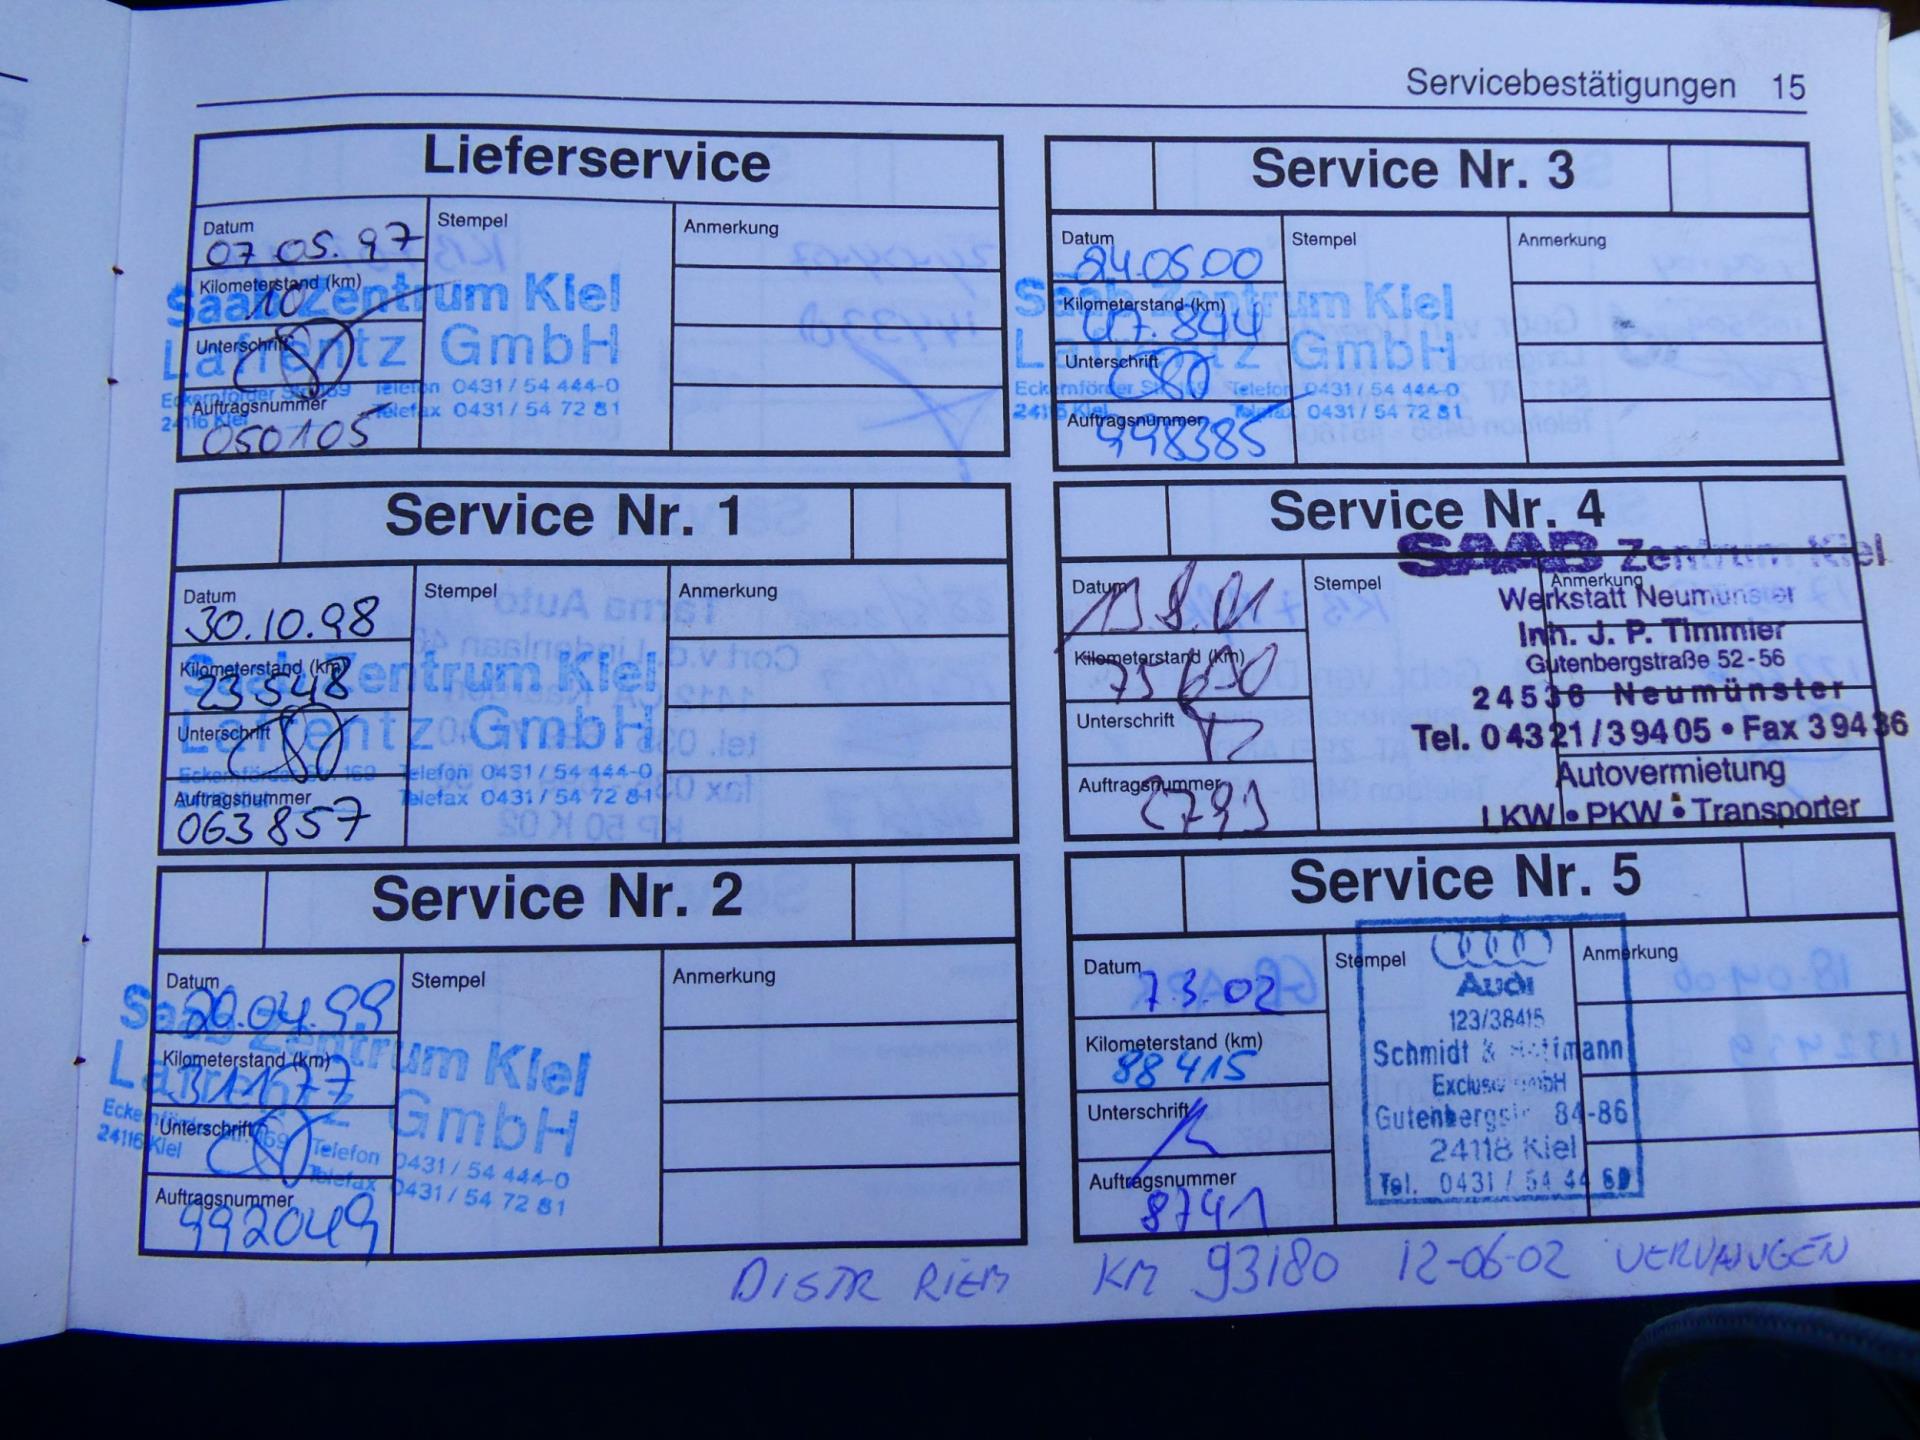 Servicebestätigungen 15
Lieferservice
Datum
07.05.97
Stempel
Anmerkung
Kilometerstand (km)
10
Saab Zentrum Kiel
Unterschrift
Lafrentz GmbH
Eckernförder Str. 169 Telefon 0431 / 54 444-0
24116 Kiel Telefax 0431 / 54 72 81
Auftragsnummer
050105
Service Nr. 1
Datum
30.10.98
Stempel
Anmerkung
Kilometerstand (km)
23548
Saab Zentrum Kiel
Unterschrift
Lafrentz GmbH
Eckernförder Str. 169 Telefon 0431 / 54 444-0
24116 Kiel Telefax 0431 / 54 72 81
Auftragsnummer
063857
Service Nr. 2
Datum
20.04.99
Stempel
Anmerkung
Saab Zentrum Kiel
Kilometerstand (km)
31177
Lafrentz GmbH
Unterschrift
Eckernförder Str. 169 Telefon 0431 / 54 444-0
24116 Kiel Telefax 0431 / 54 72 81
Auftragsnummer
992049
Service Nr. 3
Datum
24.05.00
Stempel
Anmerkung
Kilometerstand (km)
47.844
Saab Zentrum Kiel
Unterschrift
Lafrentz GmbH
Eckernförder Str. 169 Telefon 0431 / 54 444-0
24116 Kiel Telefax 0431 / 54 72 81
Auftragsnummer
998385
Service Nr. 4
Datum
13.8.01
Stempel
Anmerkung
Kilometerstand (km)
Unterschrift
Auftragsnummer
SAAB Zentrum Kiel
Werkstatt Neumünster
Inh. J. P. Timmler
Gutenbergstraße 52-56
24536 Neumünster
Tel. 04321/39405 • Fax 39436
Autovermietung
LKW • PKW • Transporter
Service Nr. 5
Datum
7.3.02
Stempel
Anmerkung
Kilometerstand (km)
88415
Unterschrift
Auftragsnummer
8741
Audi
123/38415
Schmidt & Hoffmann
Exclusiv GmbH
Gutenbergstr. 84-86
24118 Kiel
Tel. 0431 / 54 44 60
DISTR RIEM KM 93180 12-06-02 VERVANGEN